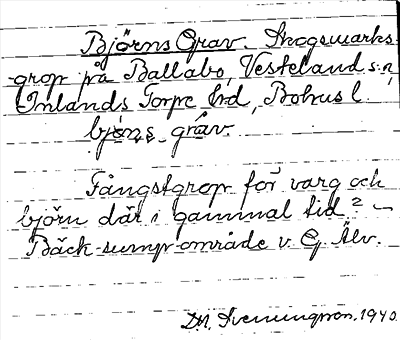 Björns Grav. Skogsmarks-
grop på Ballabo, Vesteland s:n,
Inlands Torpe hd, Bohus l.
bjö̀ns gráv.
Fångstgrop för varg och
björn där i gammal tid? —
Bäck-sump-område v. Gj Älv.
D.N. Svenningson. 1940.